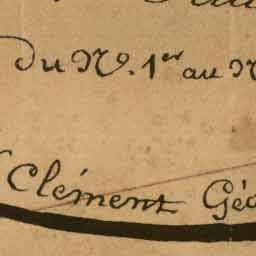 du N°. 1er au N
Clément Géo